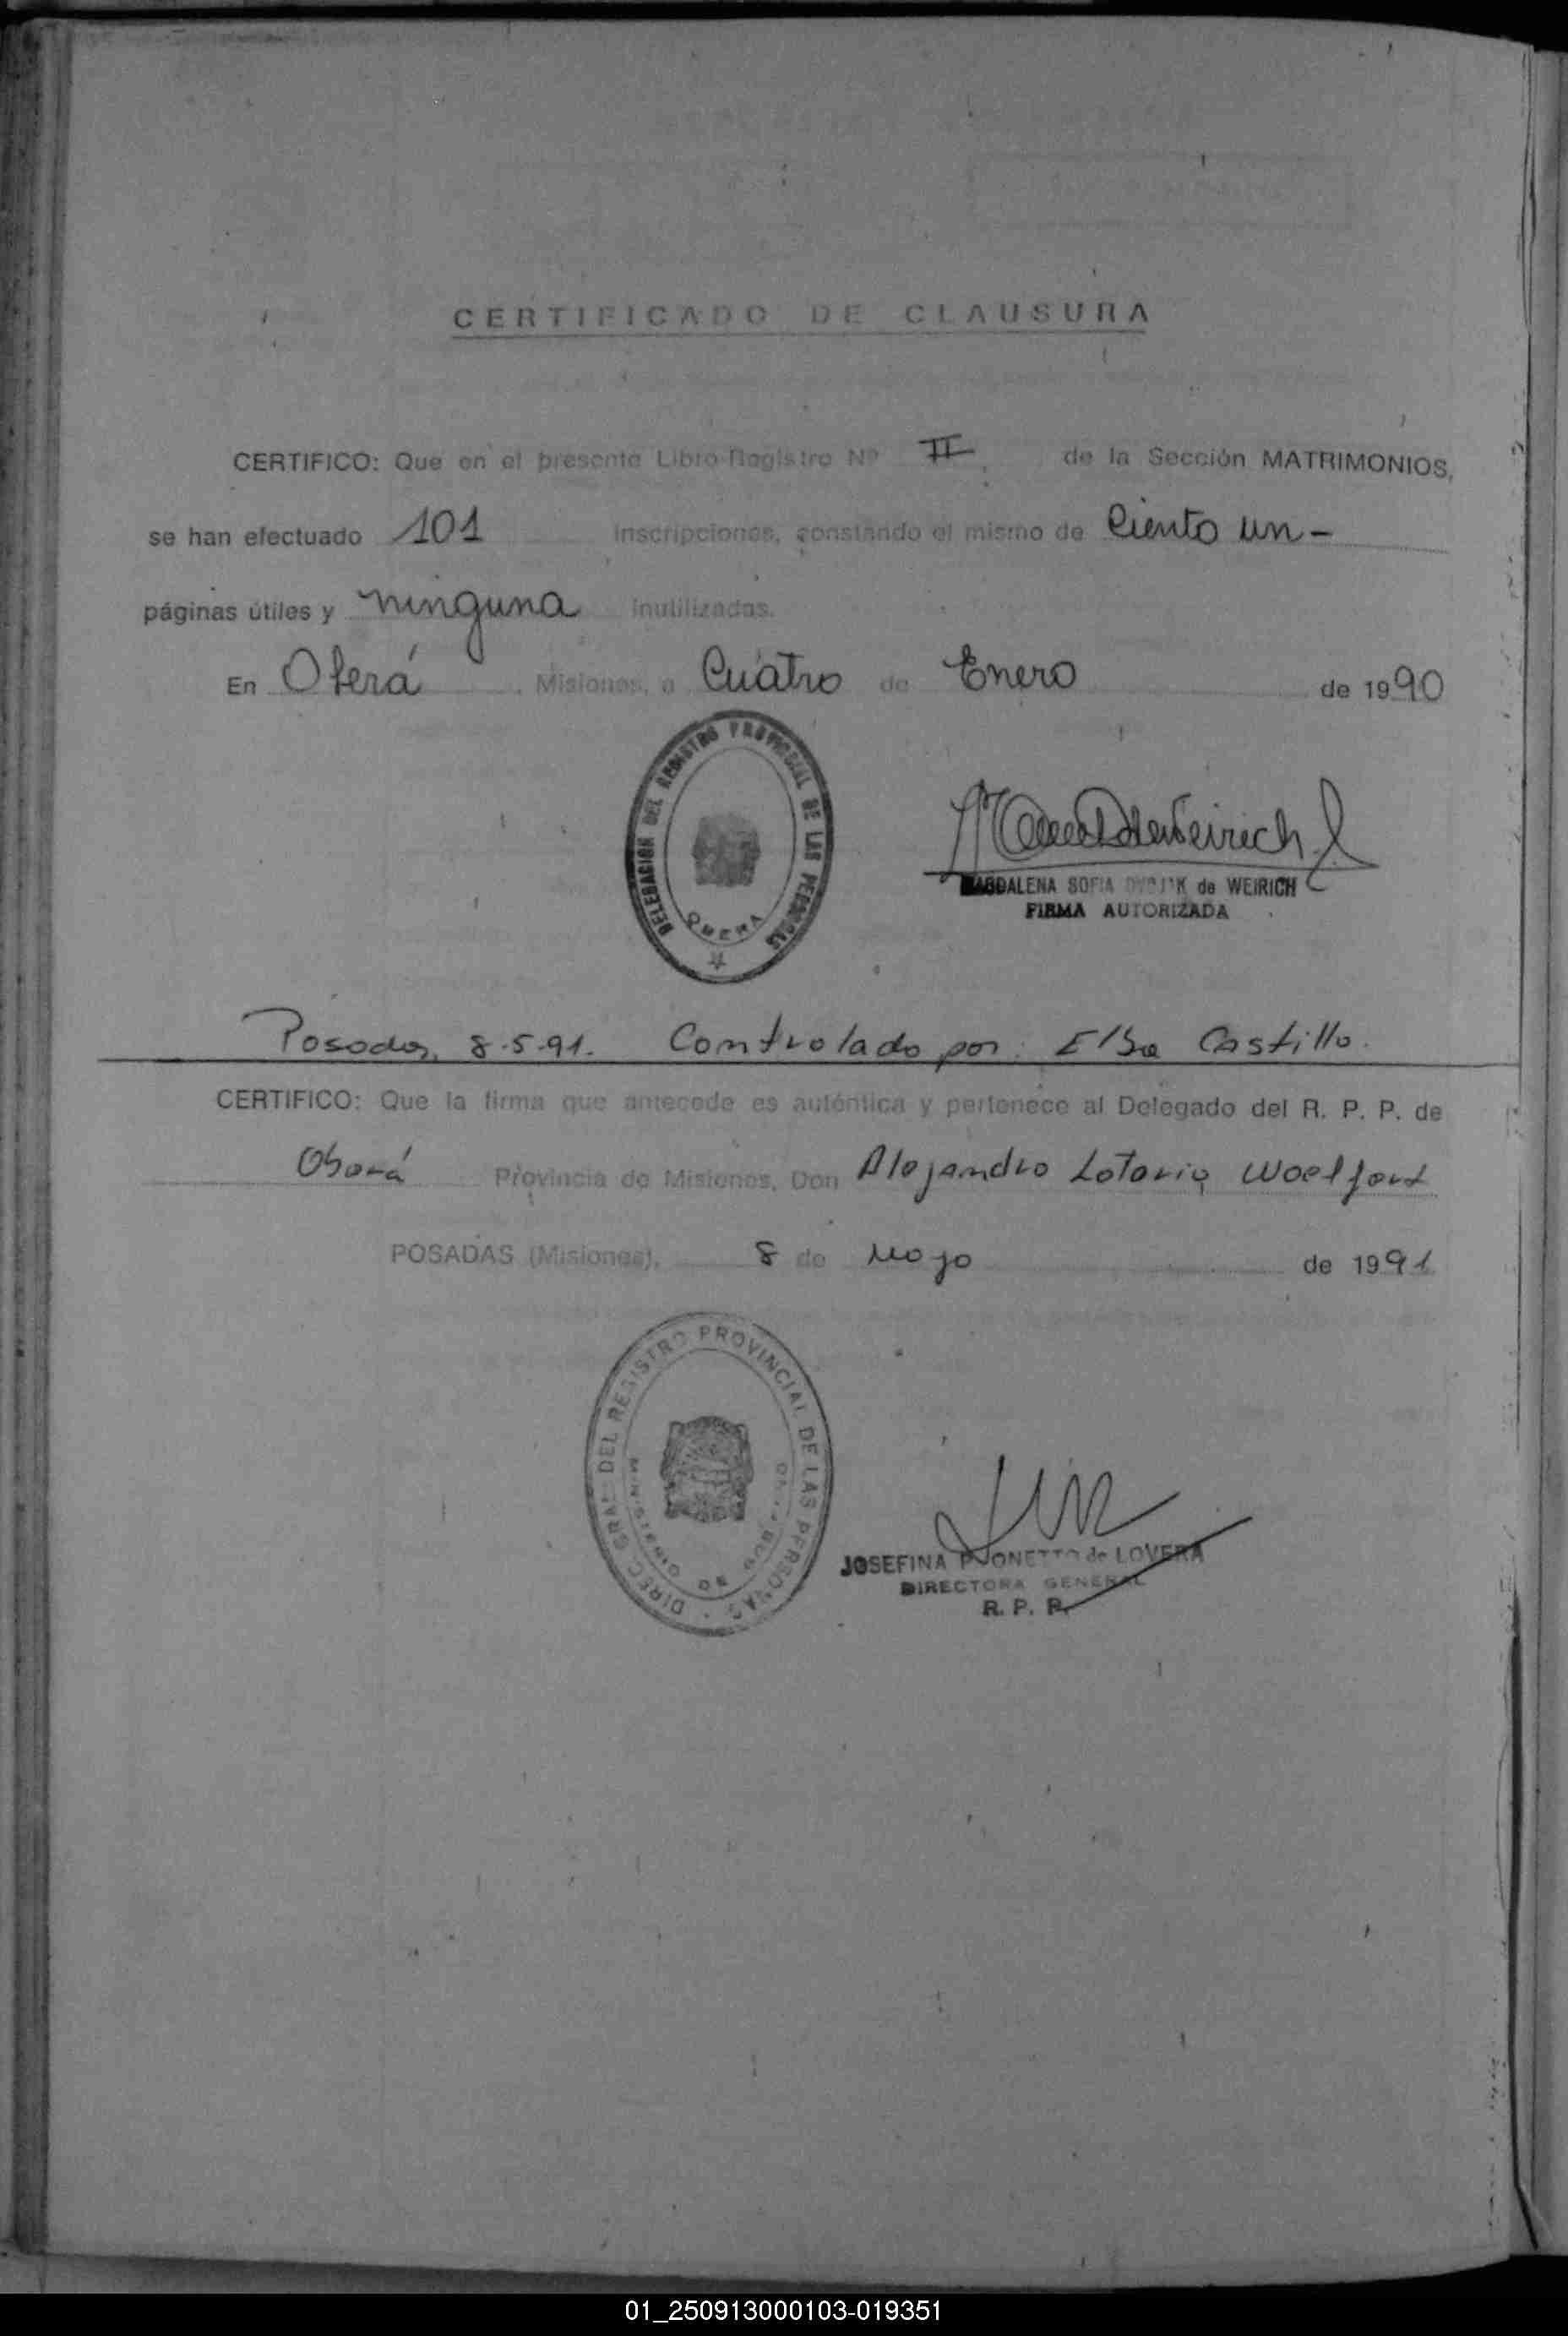 CERTIFICADO DE CLAUSURA
CERTIFICO: Que en el presente Libro-Registro Nº II de la Sección MATRIMONIOS,
se han efectuado 101 inscripciones, constando el mismo de Ciento un -
páginas útiles y ninguna inutilizadas.
En Oberá Misiones, a Cuatro de Enero de 1990
DELEGACION DEL REGISTRO PROVINCIAL DE LAS PERSONAS
OBERA
MAGDALENA SOFIA de WEIRICH
FIRMA AUTORIZADA
Posadas, 8-5-91. Controlado por: Elsa Castillo.
CERTIFICO: Que la firma que antecede es auténtica y pertenece al Delegado del R. P. P. de
Oberá Provincia de Misiones, Don Alejandro Lotario
POSADAS (Misiones), 8 de Mayo de 1991
DIREC. GRAL. DEL REGISTRO PROVINCIAL DE LAS PERSONAS
MINISTERIO DE GOBIERNO
JOSEFINA de LOVERA
DIRECTORA GENERAL
R. P. P.
01_250913000103-019351